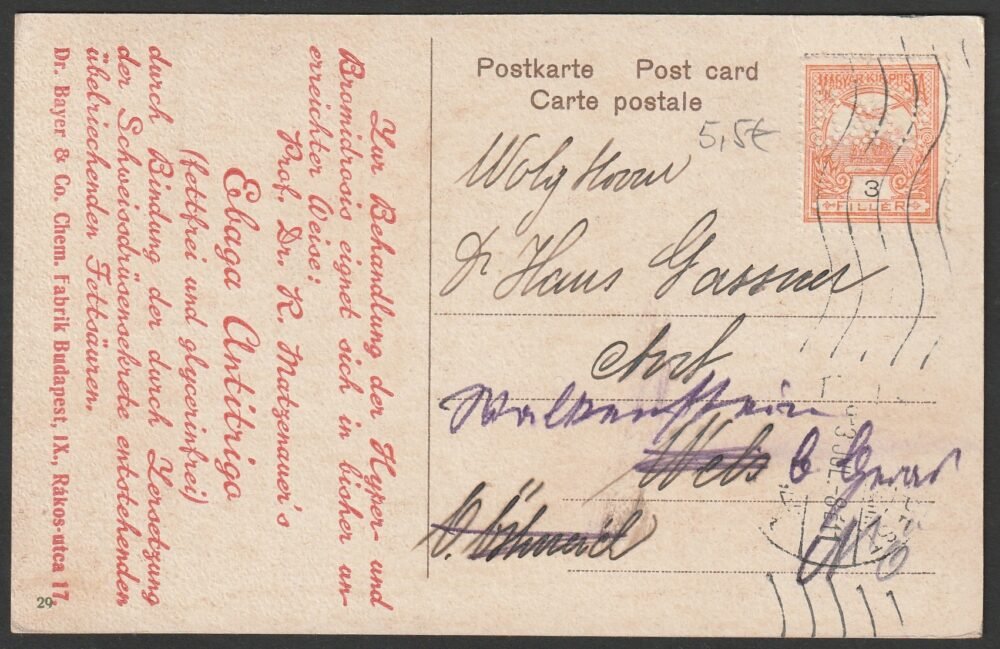 Zur Behandlung der Hyper- und
Bromidrosis eignet sich in bisher un-
erreichter Weise:
Prof. Dr. R. Matzenauer's
Ebaga Antitrigo
(fettfrei und glycerinfrei)
durch Bindung der durch Zersetzung
der Schweissdrüsensekrete entstehenden
übelriechenden Fettsäuren.
Dr. Bayer & Co. Chem. Fabrik Budapest, IX., Rákos-utca 17.
29
Postkarte Post card
Carte postale
5,5€
MAGYAR KIR. POSTA
3
FILLÉR
Dr Hans Gassner
Arzt
Walkenstein
Wels b Geras
JUL.